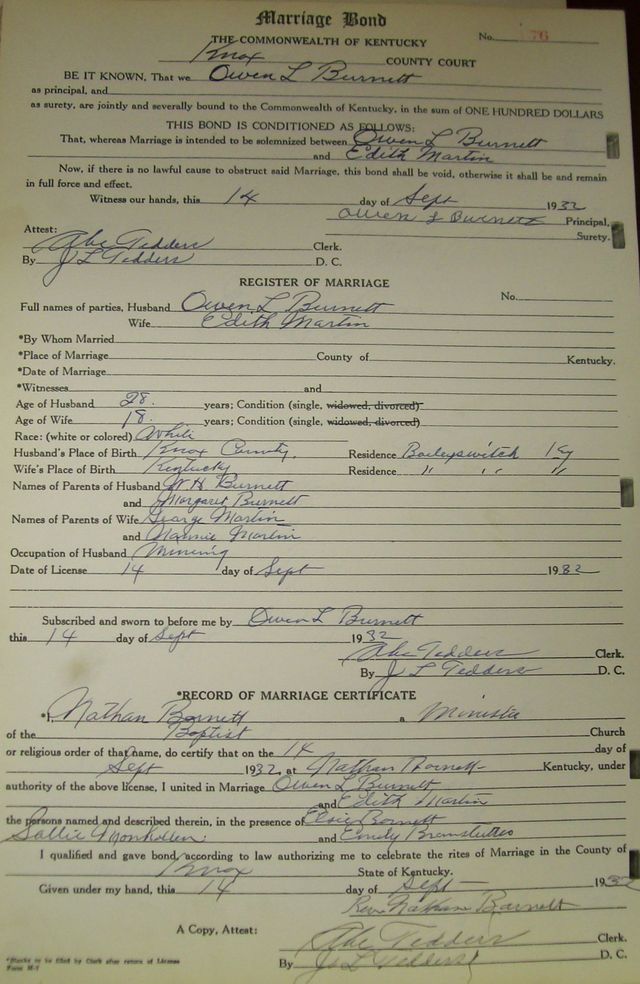 Marriage Bond
THE COMMONWEALTH OF KENTUCKY No. 176
Knox COUNTY COURT
BE IT KNOWN, That we Owen L Burnett
as principal, and
as surety, are jointly and severally bound to the Commonwealth of Kentucky, in the sum of ONE HUNDRED DOLLARS
THIS BOND IS CONDITIONED AS FOLLOWS:
That, whereas Marriage is intended to be solemnized between Owen L Burnett
and Edith Martin
Now, if there is no lawful cause to obstruct said Marriage, this bond shall be void, otherwise it shall be and remain
in full force and effect.
Witness our hands, this 14 day of Sept 1932
Owen L Burnett Principal,
Surety.
Attest:
Abe Tedders Clerk.
By J L Tedders D. C.
REGISTER OF MARRIAGE
Full names of parties, Husband Owen L Burnett No.
Wife Edith Martin
*By Whom Married
*Place of Marriage County of Kentucky.
*Date of Marriage
*Witnesses and
Age of Husband 28 years; Condition (single, widowed, divorced)
Age of Wife 18 years; Condition (single, widowed, divorced)
Race: (white or colored) White
Husband's Place of Birth Knox County. Residence Baileyswitch Ky
Wife's Place of Birth Kentucky Residence " " "
Names of Parents of Husband W H Burnett
and Margaret Burnett
Names of Parents of Wife George Martin
and Nannie Martin
Occupation of Husband Mining
Date of License 14 day of Sept 1932
Subscribed and sworn to before me by Owen L Burnett
this 14 day of Sept 1932
Abe Tedders Clerk.
By J L Tedders D. C.
*RECORD OF MARRIAGE CERTIFICATE
*I, Nathan Barnett a Minister
of the Baptist Church
or religious order of that name, do certify that on the 14 day of
Sept 1932, at Nathan Barnett Kentucky, under
authority of the above license, I united in Marriage Owen L Burnett
and Edith Martin
the persons named and described therein, in the presence of Barnett
Sallie and Emily
I qualified and gave bond, according to law authorizing me to celebrate the rites of Marriage in the County of
Knox State of Kentucky.
Given under my hand, this 14 day of Sept 1932
Rev. Nathan Barnett
A Copy, Attest:
Abe Tedders Clerk.
*Blanks to be filled by Clerk after return of License
By J L Tedders D. C.